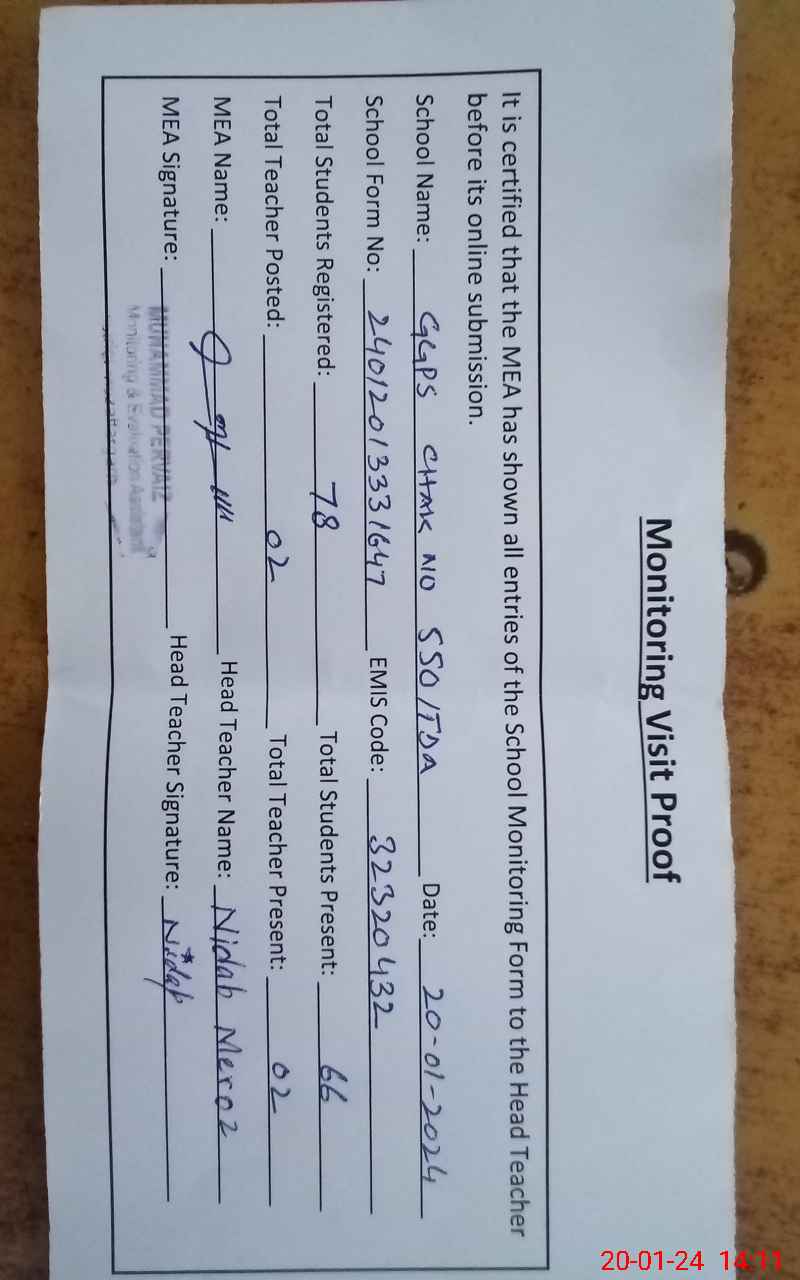 Monitoring Visit Proof
It is certified that the MEA has shown all entries of the School Monitoring Form to the Head Teacher
before its online submission.
School Name: GGPS CHAK NO 550/TDA Date: 20-01-2024
School Form No: 24012013331647 EMIS Code: 32320432
Total Students Registered: 78 Total Students Present: 66
Total Teacher Posted: 02 Total Teacher Present: 02
MEA Name: Head Teacher Name: Nidab Meroz
MEA Signature: Head Teacher Signature: Nidab
MUHAMMAD PERVAIZ
Monitoring & Evaluation Assistant
20-01-24 14:11